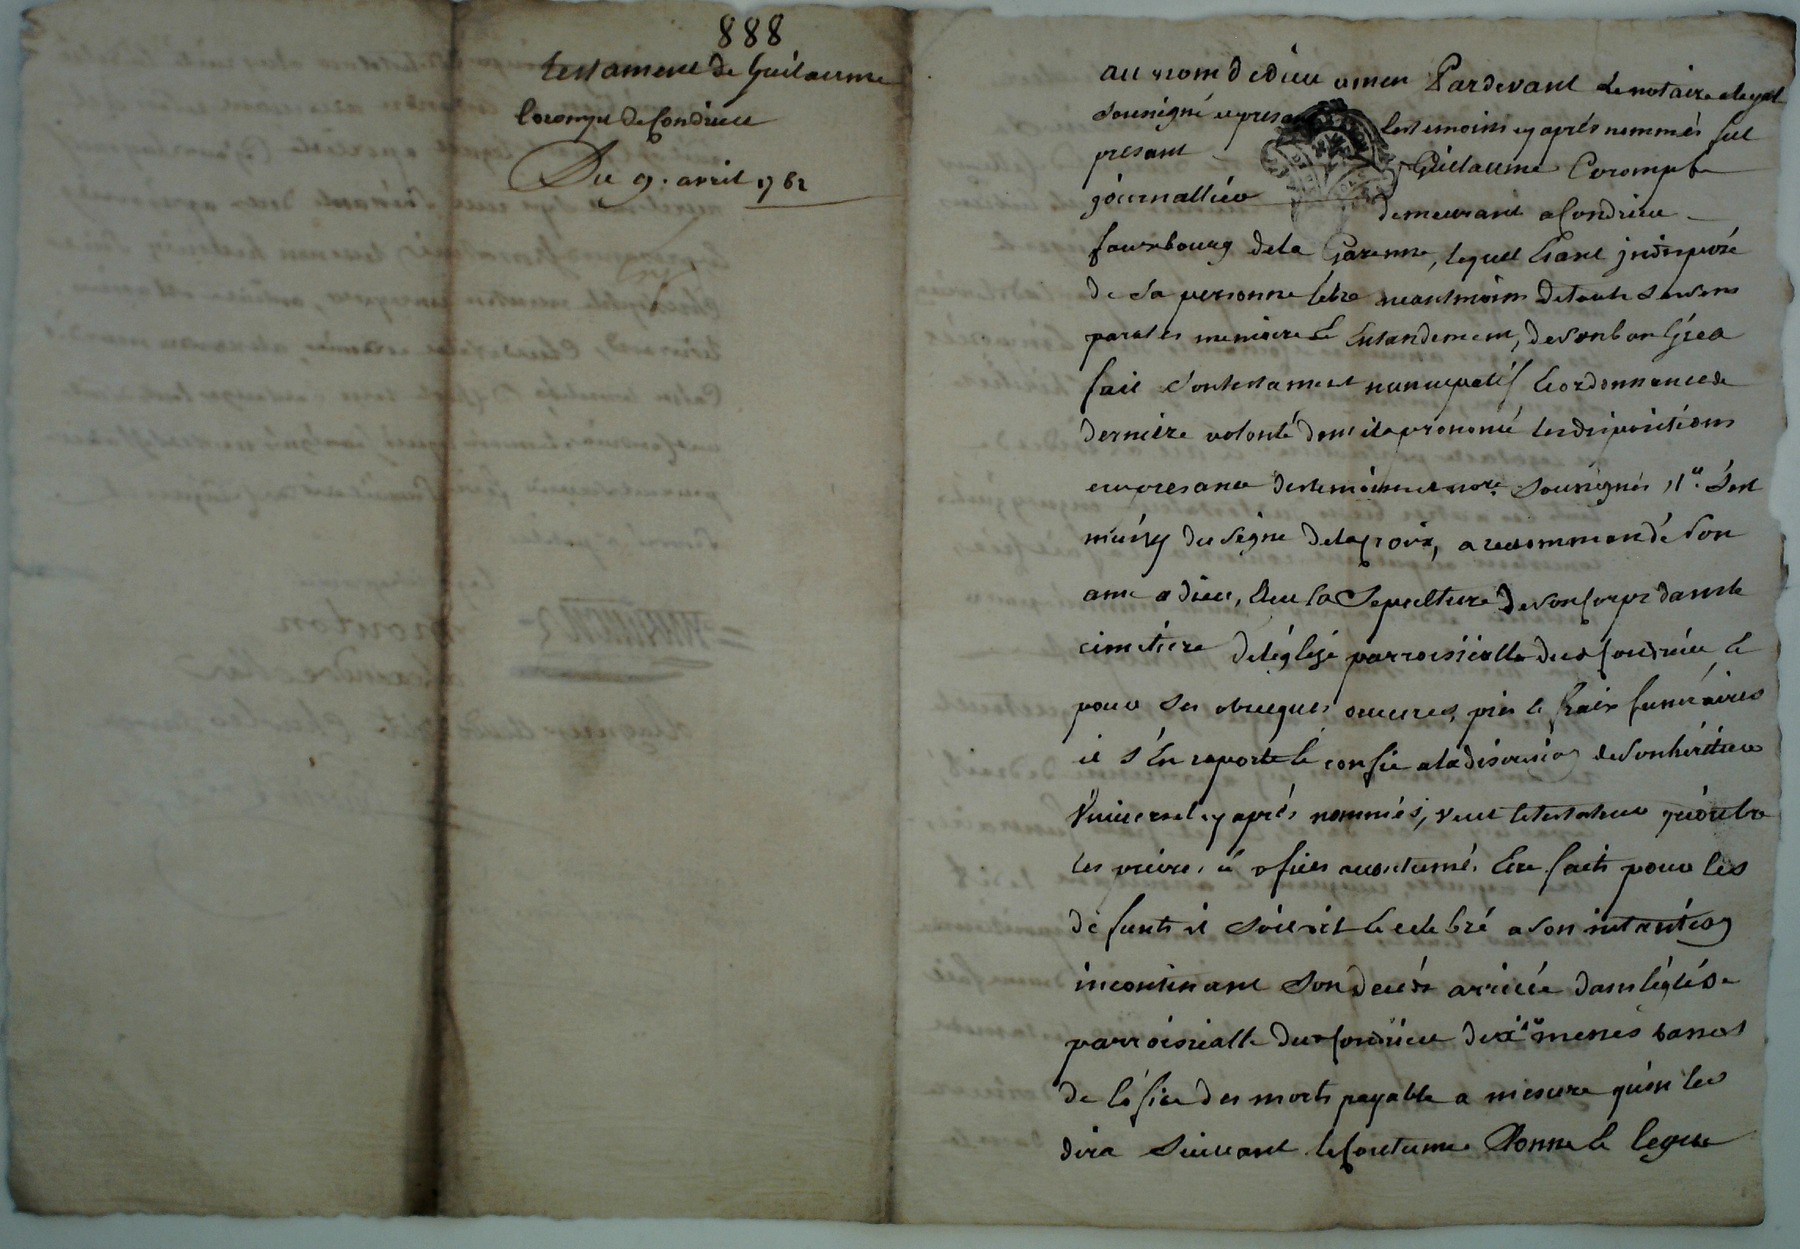 888
testament de Guilaume
Corompt de Condrieu
Du 9. avril 1762
au nom de dieu amen Pardevant le notaire royal
sousigné et presans les temoins cy aprés nommés fut
presant Guillaume Corompt
journallier demeurant a Condrieu
fauxbourg de la Garenne, lequel Etant jndisposé
de sa personne libre neantmoins de touts ses sens
parolés memoire et Entandement, de son bon Gré a
fait son testament nuncupatif et ordonnance de
derniere volonté dont il a prononcé les dispositions
en presance des temoins et no.re sousignés, s'est
muny du signe de la croix, a recommandé son
ame a dieu, Elu la Sepulture de son corps dans le
cimetiere de l'églize parroissialle dud Condrieu et
pour ses obseques oeuvres pies et fraix funéraires
il s'En raporte et confie a la discretion de son héritier
Vniversel cy aprés nommés, veut le testateur qu'outre
les prieres et ofices acoutumés Etre faits pour les
defunts il soit dit et celebré a son intention
incontinant son decés arrivée dans l'églize
parroissialle dud Condrieu messes basses
de l'ofice des morts payable a mesure qu'on les
dira suivant la Coutume Donne et legue